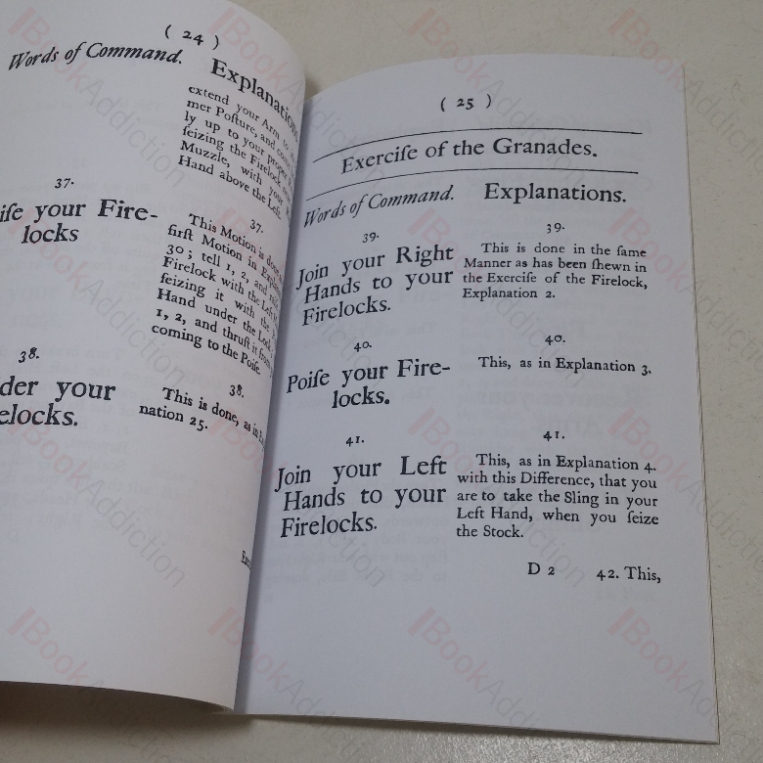 ( 24 )
Words of Command.
Explanations
extend your Arm to
mer Poſture, and
ly up to your proper
ſeizing the Firelock
Muzzle, with your
Hand above the Left.
37.
iſe your Fire-
locks
37.
This Motion is done
firſt Motion in
30; tell 1, 2, and
Firelock with the Left
ſeizing it with the
Hand under the Lock,
1, 2, and thruſt it from
coming to the Poiſe.
38.
der your
elocks.
38.
This is done, as in
nation 25.
( 25 )
Exerciſe of the Granades.
Words of Command. Explanations.
39.
Join your Right
Hands to your
Firelocks.
39.
This is done in the ſame
Manner as has been ſhewn in
the Exerciſe of the Firelock,
Explanation 2.
40.
Poiſe your Fire-
locks.
40.
This, as in Explanation 3.
41.
Join your Left
Hands to your
Firelocks.
41.
This, as in Explanation 4.
with this Difference, that you
are to take the Sling in your
Left Hand, when you ſeize
the Stock.
D 2 42. This,
BookAddiction